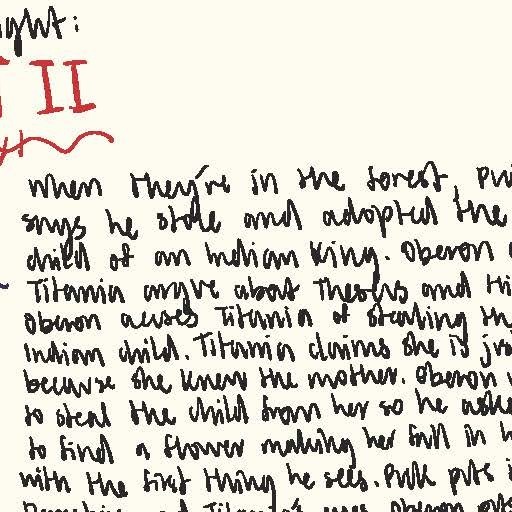 ght:
II
when they're in the forest, pu
says he stole and adopted the
child of an Indian King. Oberon
Titania argue about Theseus and Hi
Oberon accuses Titania of stealing th
Indian child. Titania claims she is ju
because she knew the mother. Oberon w
to steal the child from her so he aske
to find a flower making her fall in l
with the first thing he sees. Puk puts i
and Titania's eyes. Oberon puts